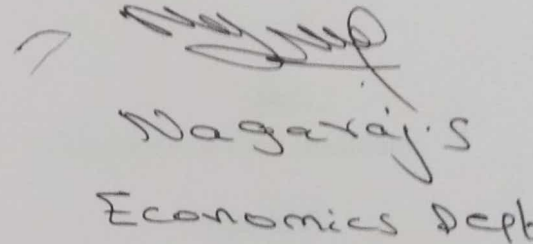 Nagaraj.S
Economics Dept